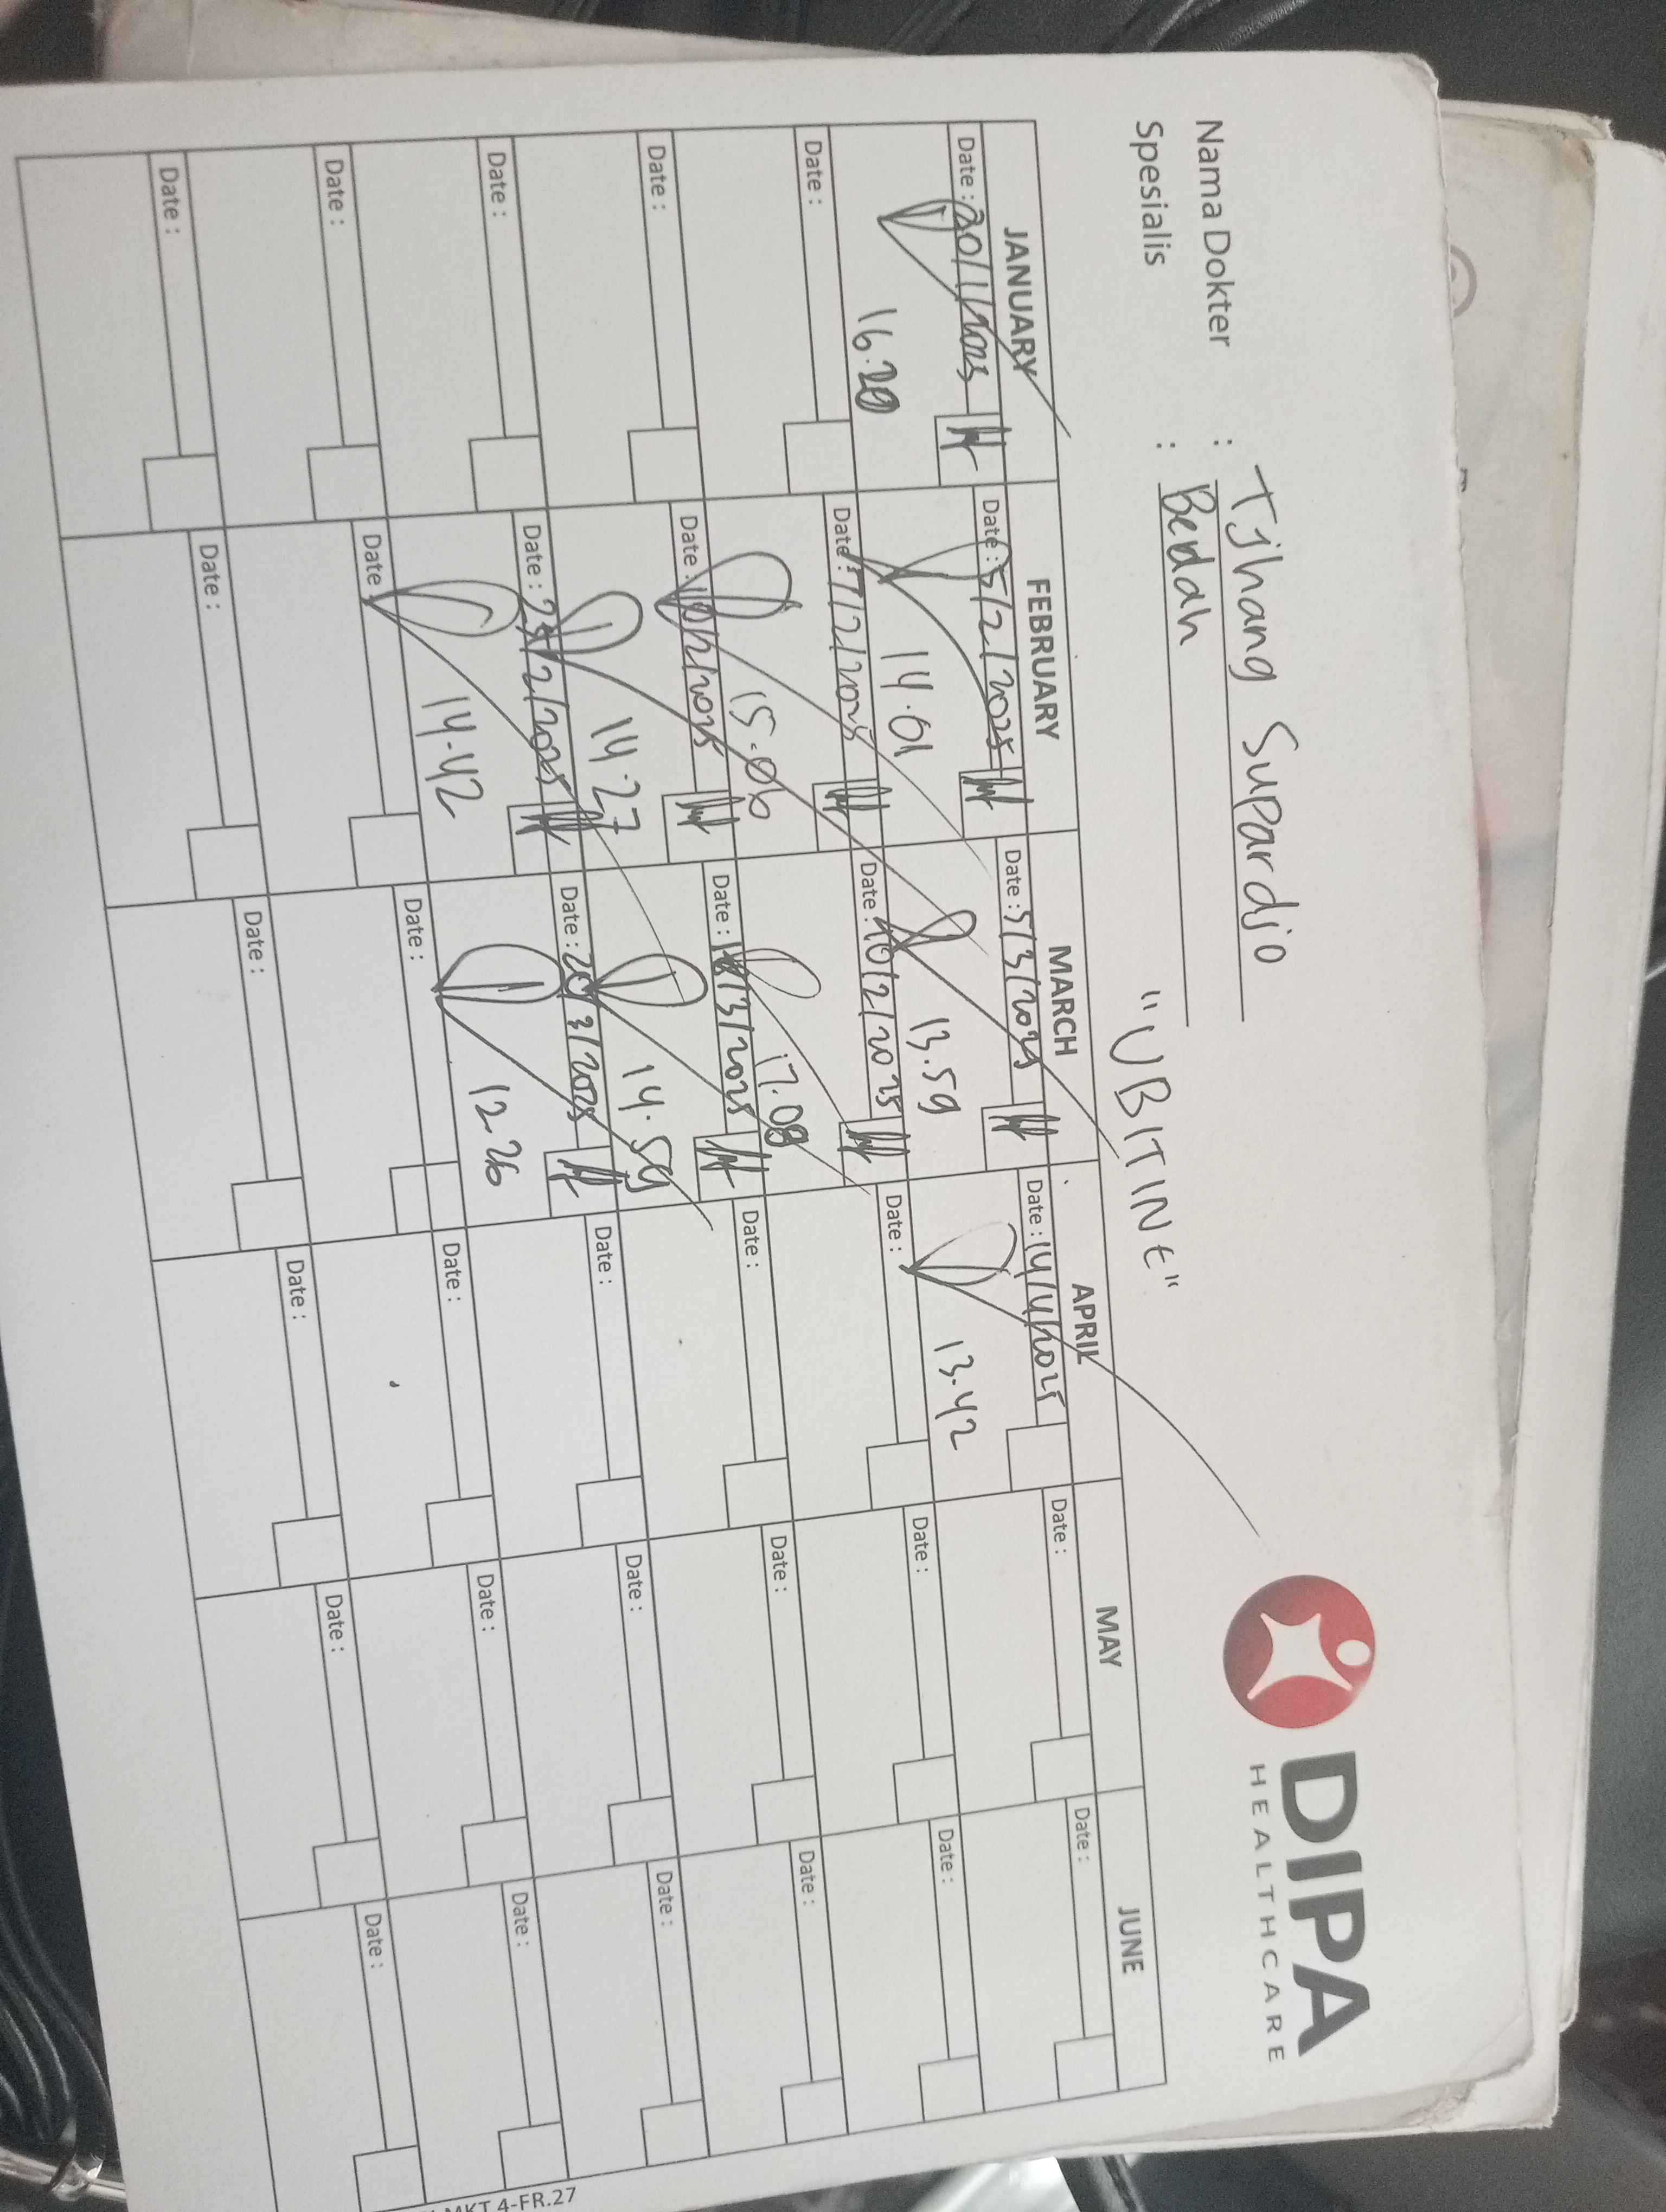 DIPA
HEALTHCARE
Nama Dokter : Tjhang Supardjo
Spesialis : Bedah
"UBITINE"
JANUARY FEBRUARY MARCH APRIL MAY JUNE
Date : 20/1/2025 Date : 5/2/2025 Date : 5/3/2025 Date : 14/4/2025 Date : Date :
16.20 14.01 13.59 13.42
Date : Date : 7/2/2025 Date : 10/2/2025 Date : Date : Date :
15.06 17.08
Date : Date : 10/2/2025 Date : /3/2025 Date : Date : Date :
14.27 14.59
Date : Date : /2/2025 Date : 20/3/2025 Date : Date : Date :
14.42 12.26
Date : Date : Date : Date : Date : Date :
Date : Date : Date : Date : Date : Date :
MKT 4-FR.27